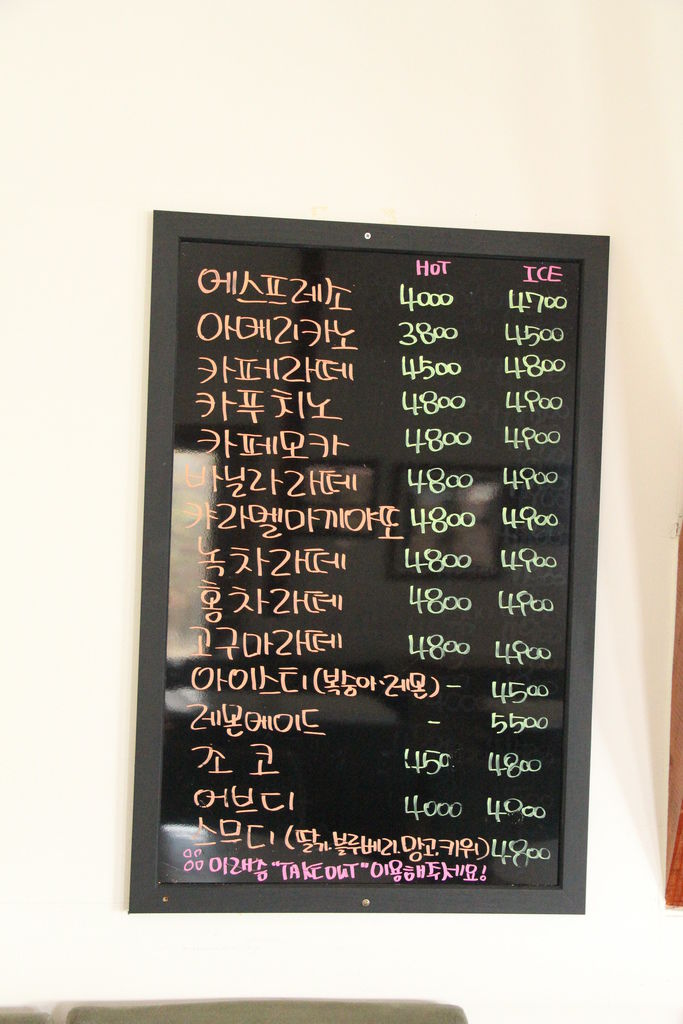 HOT ICE
에스프레소 4000 4700
아메리카노 3800 4500
카페라떼 4500 4800
카푸치노 4800 4900
카페모카 4800 4900
바닐라라떼 4800 4900
캬라멜마끼야또 4800 4900
녹차라떼 4800 4900
홍차라떼 4800 4900
고구마라떼 4800 4900
아이스티(복숭아·레몬) - 4500
레몬에이드 - 5500
쵸코 450 4800
허브디 4000 4900
스무디 (딸기.블루베리.망고.키위) 4800
"TAKE OUT" 이용해주세요!